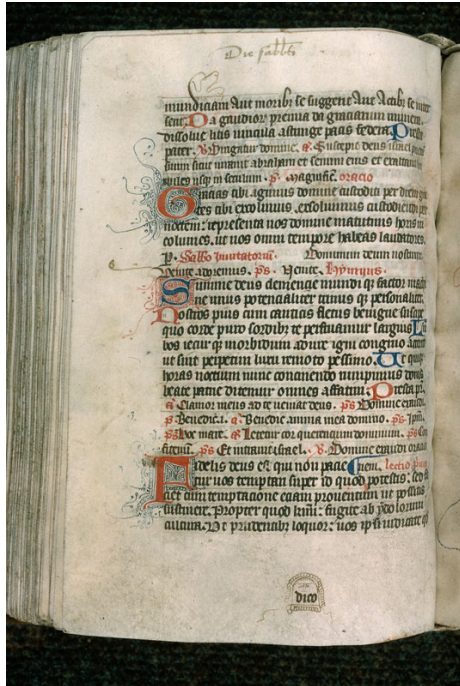 Die sabbti
mundiciam Aut moribȝ se suggerit Aut Actibȝ se inter
serit Da gaudiorȝ premia da graciarum munera.
dissolue litis vincula astringe pacis federa. Presta
pater. Dirigatur domine. a. Suscepit deus israel
suum sicut iurauit abraham et semini eius et exaltauit
usqȝ in seculum. p. Magnificat. oracio
Gracias tibi agimus domine custoditi per diem
tes tibi exoluimus, exsoluimus custodiendi per
noctem: representa nos domine matutinis horis in
columes. ut nos omni tempore habeas laudatores.
p. Sabbo Inuitatoriū. Dominum deum nostrum.
Venite adoremus. ps. Venite. Hymnus.
Summe deus clemencie mundi qȝ factor machi
ne unus potencialiter trinus qȝ personaliter.
Nostros pius cum canticis fletus benigne suscipe
quo corde puro sordibȝ te perfruamur largius Lū
bos iecur qȝ morbidum adure igni congruo
ut sint perpetim luxu remoto pessimo. Ut quiqȝ
horas noctium nunc concinendo rumpimus donis
beate patrie ditemur omnes affatim. Presta p̄r.
a. Clamor meus ad te veniat deus. ps Domine exaudi
p. Benedic. i. a. Benedic anima mea domino. ps. Ipm̄.
ps Hoc mare. a. Letetur cor querencium dominum. ps Con
fitemī. ps. Et intrauit israel. v. Domine exaudi oracio
nem. lectio p̄ma
Fidelis deus est qui non pacie
tur vos temptari super id quod potestis: sed fa
ciet cum temptacione eciam prouentum ut possitis
sustinere. Propter quod kmī: fugite ab ydolorum
cultura. Ut prudentibȝ loquor: vos ipsi iudicate qd
dico